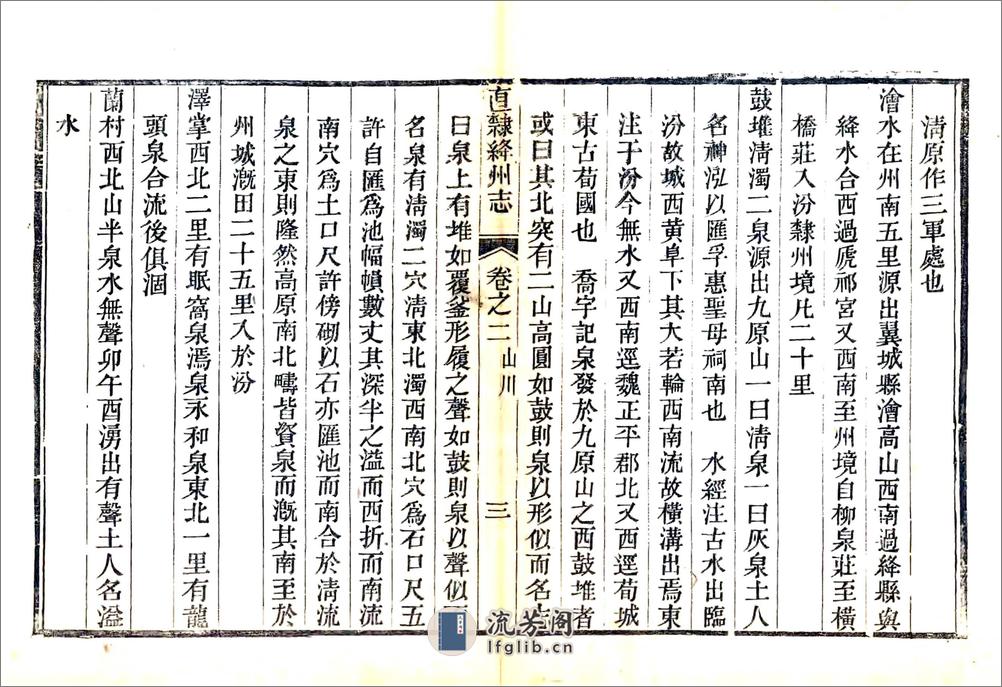 清原作三軍處也
澮水在州南五里源出翼城縣澮高山西南過絳縣與
絳水合西過虒祁宮又西南至州境自柳泉莊至橫
橋莊入汾隸州境凡二十里
鼓堆清濁二泉源出九原山一曰清泉一曰灰泉土人
名神泓以匯孚惠聖母祠南也　水經注古水出臨
汾故城西黄阜下其大若輪西南流故橫溝出焉東
注于汾今無水又西南逕魏正平郡北又西逕荀城
東古荀國也　喬宇記泉發於九原山之西鼓堆者
或曰其北突有二山高圓如鼓則泉以形似而名
直隸絳州志　卷之二　山川　三
曰泉上有堆如覆釜形履之聲如鼓則泉以聲似
名泉有清濁二穴清東北濁西南北穴爲石口尺五
許自匯爲池幅幀數丈其深半之溢而西折而南流
南穴爲土口尺許傍砌以石亦匯池而南合於清流
泉之東則隆然高原南北疇皆資泉而漑其南至於
州城漑田二十五里入於汾
澤掌西北二里有眠窩泉馮泉永和泉東北一里有龍
頭泉合流後俱涸
蘭村西北山半泉水無聲卯午酉湧出有聲土人名溢
水
流芳阁
lfglib.cn